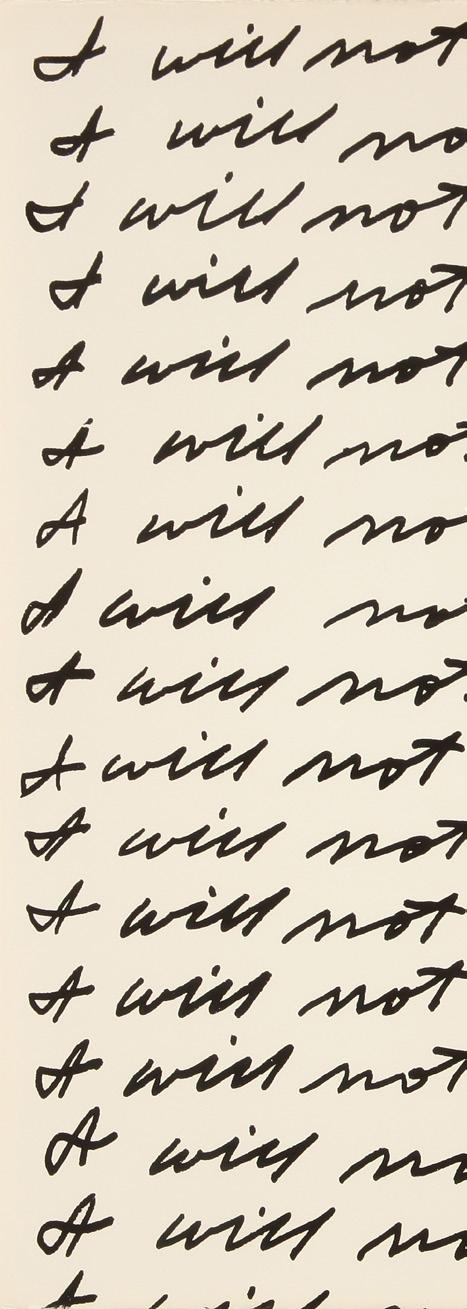 I will not
I will no
I will not
I will not
I will not
I will no
I will no
I will no
I will no
I will not
I will not
I will not
I will not
I will not
I will no
I will no